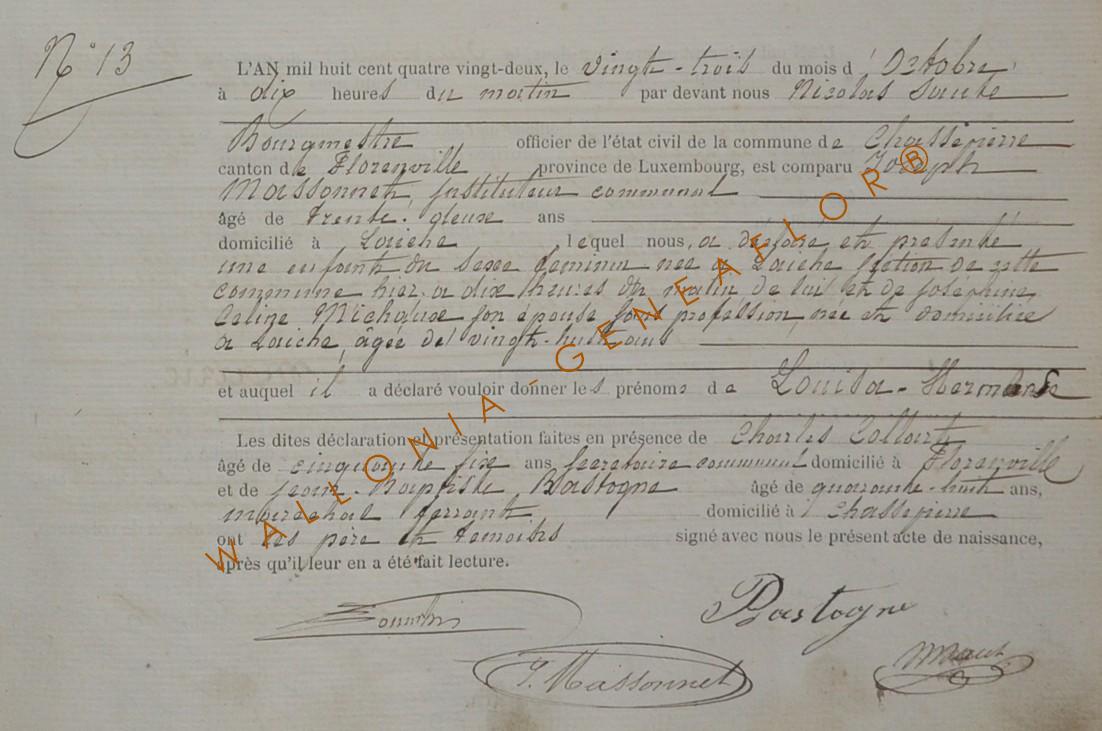 N° 13
L'AN mil huit cent quatre vingt-deux, le vingt-trois du mois d'Octobre
à dix heures du matin par devant nous Nicolas
Bourgmestre officier de l'état civil de la commune de Chassepierre
canton de Florenville province de Luxembourg, est comparu Joseph
Massonnet, Instituteur communal
âgé de trente-deux ans
domicilié à Laiche lequel nous a déclaré et présenté
une enfant du sexe féminin née à Laiche section de cette
commune hier à dix heures du matin de lui et de Joséphine
Celine Michaux son épouse sans profession, née et domiciliée
à Laiche, âgée de vingt-huit ans
et auquel il a déclaré vouloir donner les prénoms de Louisa-
Les dites déclaration et présentation faites en présence de Charles Collart
âgé de cinquante six ans secrétaire communal domicilié à Florenville
et de Jean-Baptiste Bastogne âgé de quarante-huit ans,
maréchal ferrant domicilié à Chassepierre
ont les père et témoins signé avec nous le présent acte de naissance,
après qu'il leur en a été fait lecture.
Bastogne
J. Massonnet
WALLONIA-GENEAFLOR®